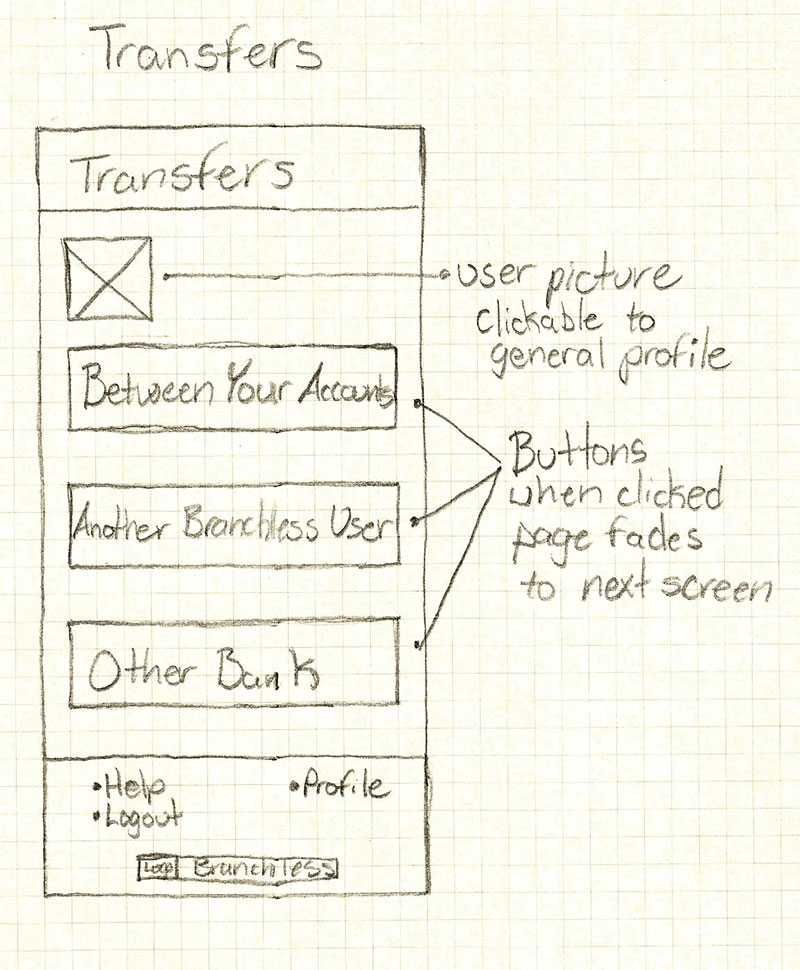 Transfers
Transfers
•user picture
clickable to
general profile
Between Your Accounts
Another Branchless User
Buttons
when clicked
page fades
to next screen
Other Bank
•Help
•Profile
•Logout
Logo Branchless